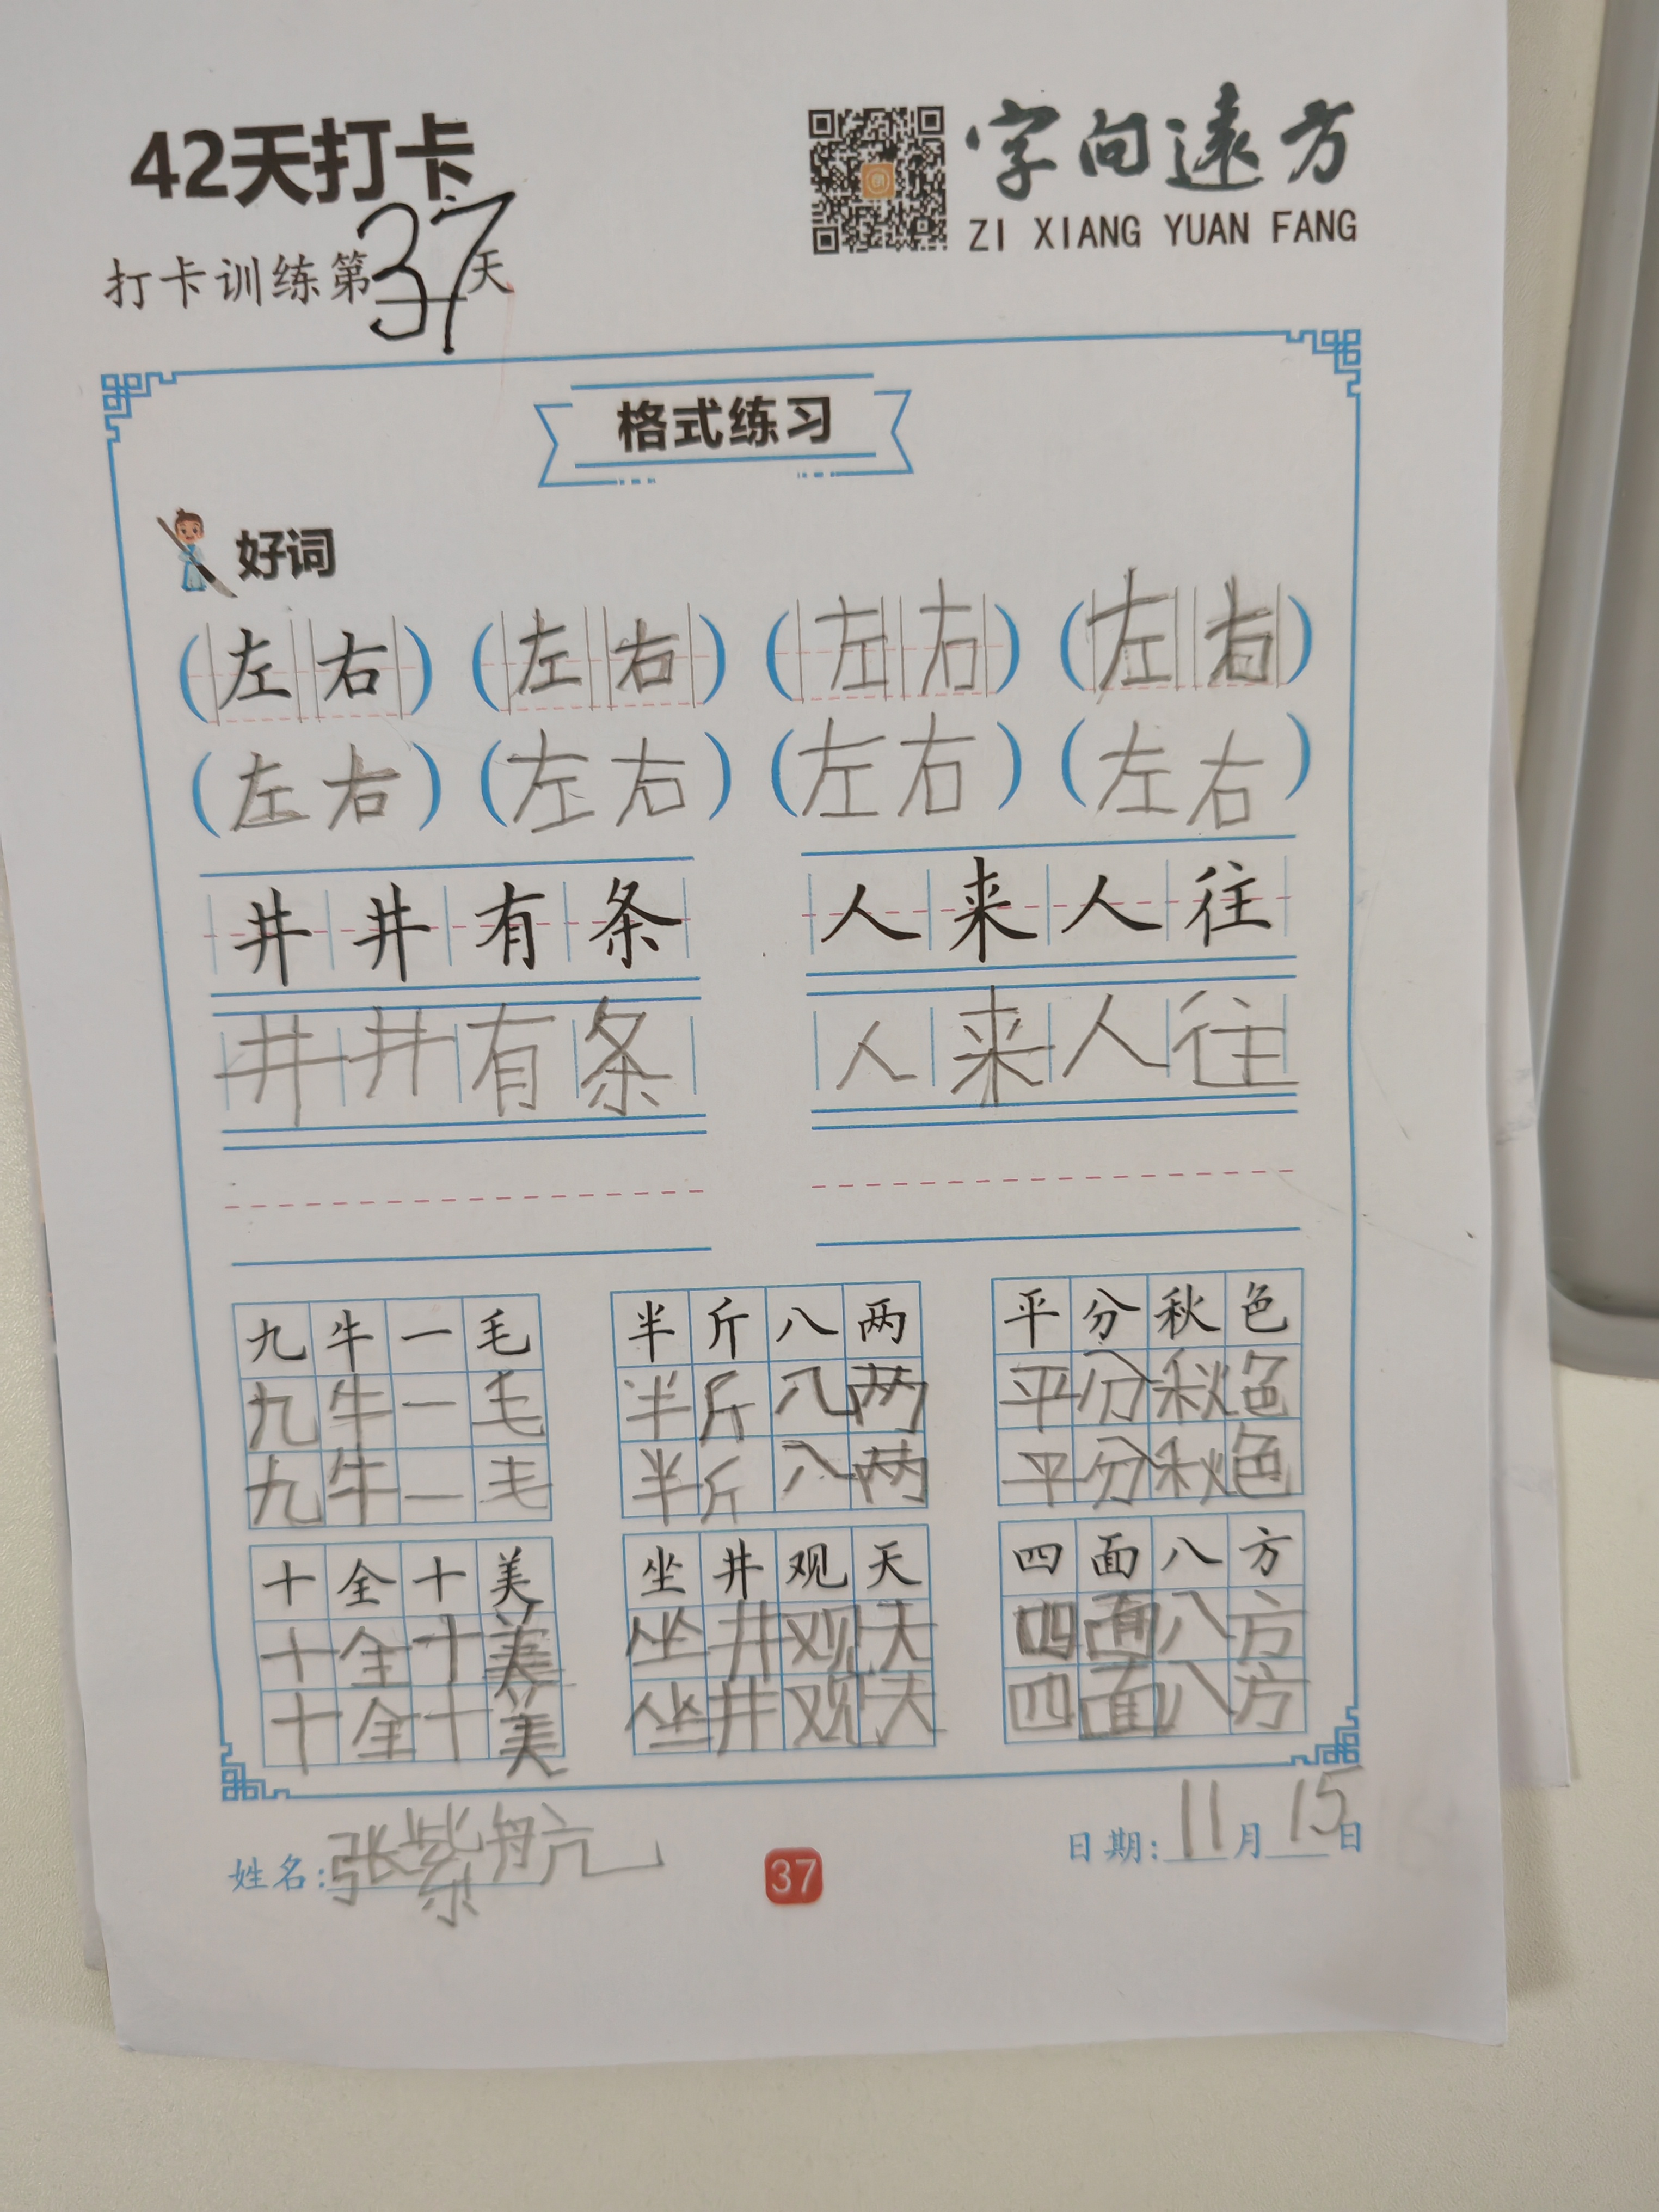 42天打卡
字向遠方
ZI XIANG YUAN FANG
打卡训练第37天
格式练习
好词
(左右) (左右) (左右) (左右)
(左右) (左右) (左右) (左右)
井井有条 人来人往
井井有条 人来人往
九牛一毛 半斤八两 平分秋色
九牛一毛 半斤八两 平分秋色
九牛一毛 半斤八两 平分秋色
十全十美 坐井观天 四面八方
十全十美 坐井观天 四面八方
十全十美 坐井观天 四面八方
姓名:张紫航 37 日期:11月15日